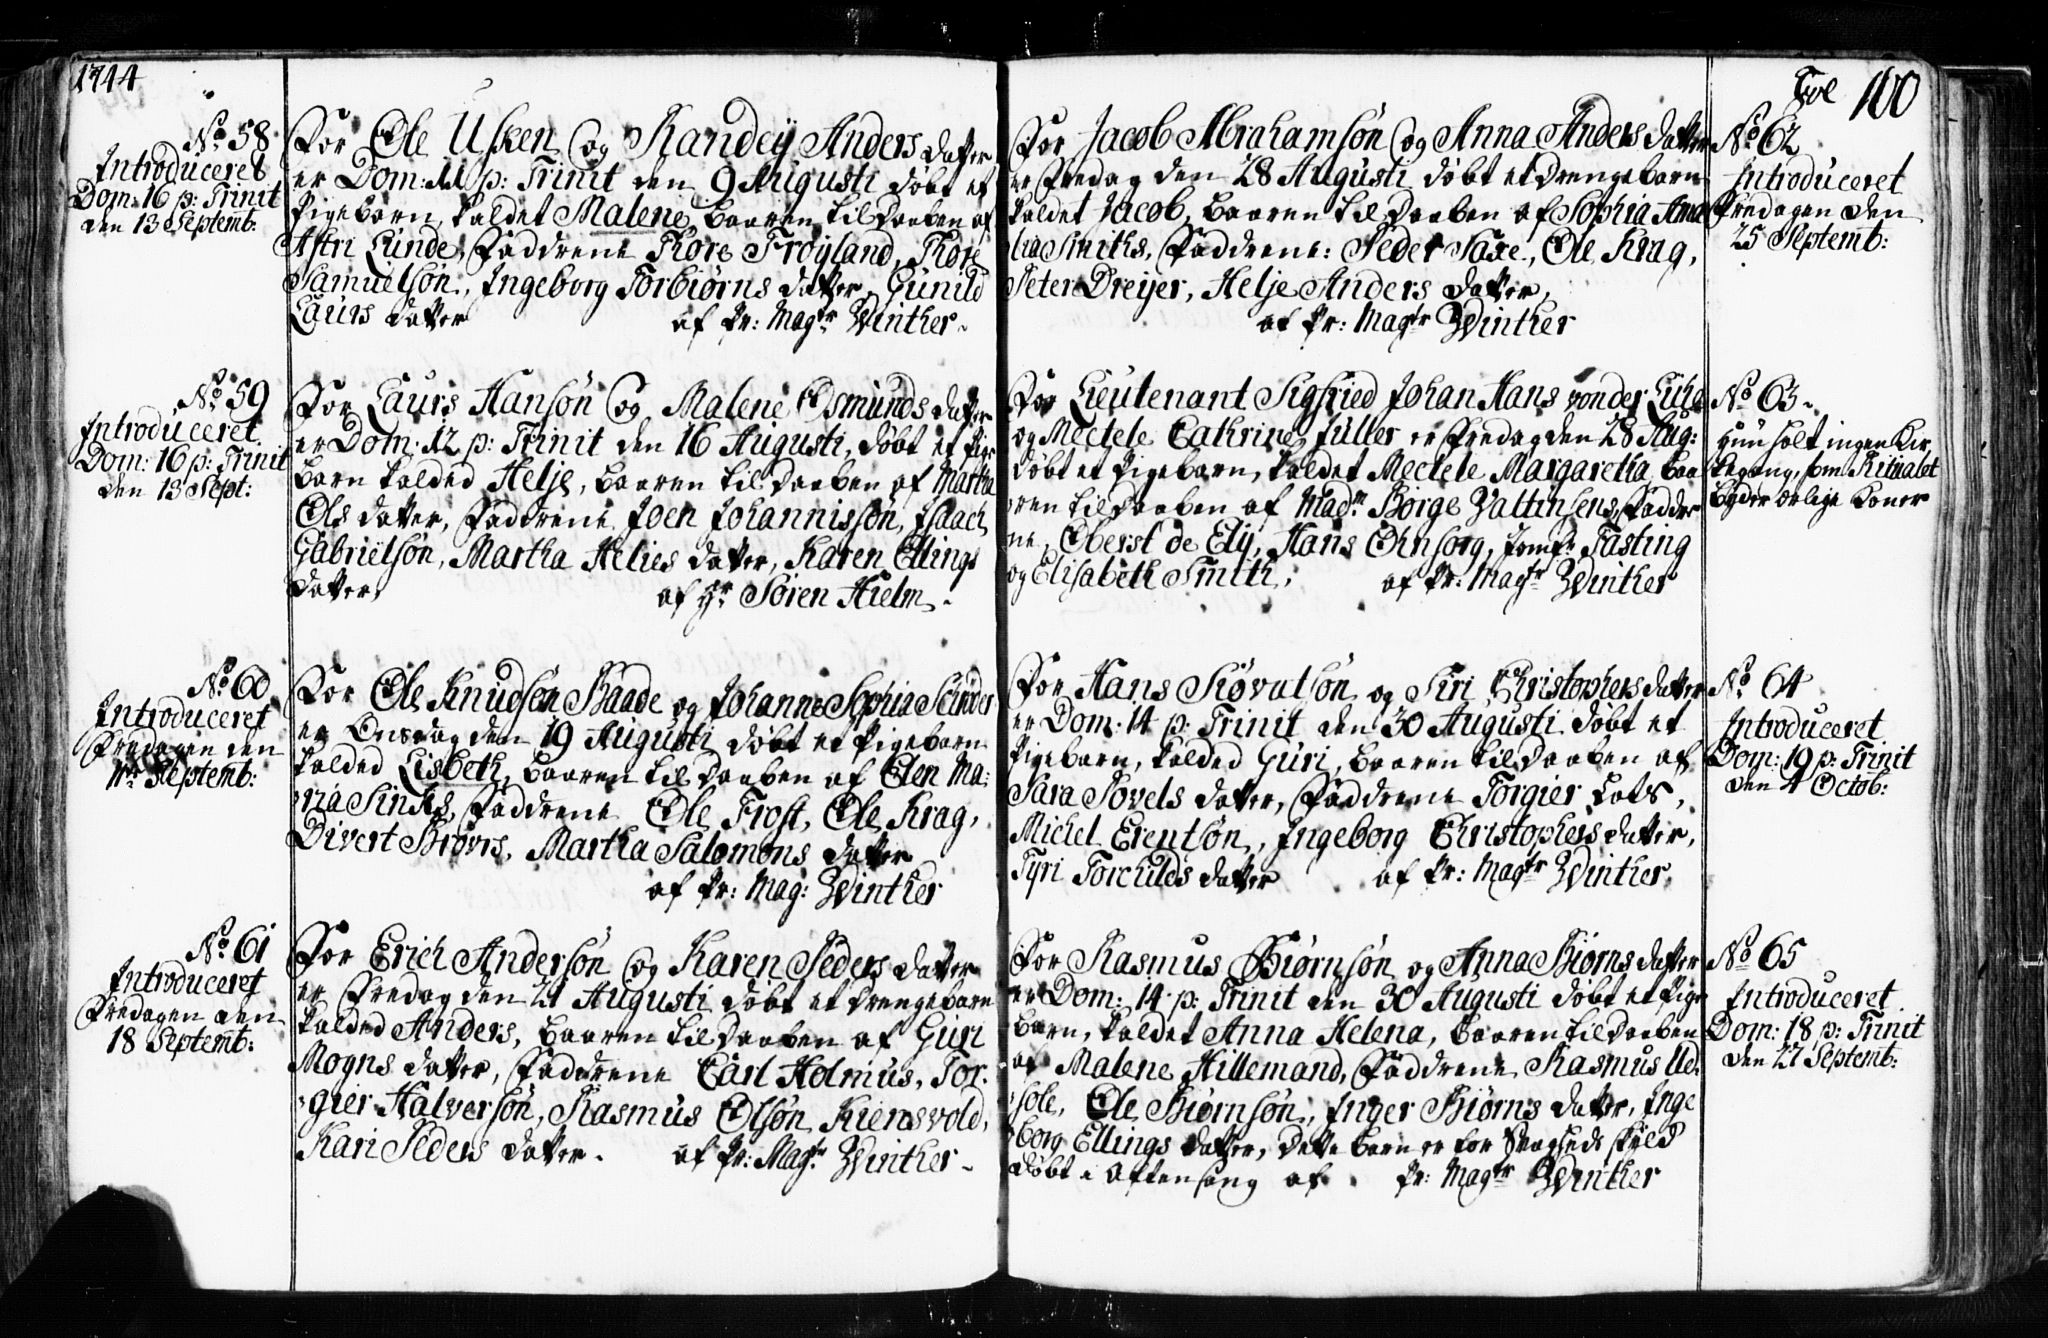 1744
No 58
Introduceret
Dom: 16 p: Trinit
den 13 Septemb:
For Ole Usken og Randey Anders datter
er Dom: 11 p: Trinit den 9 Augusti døbt et
Pigebarn, kaldet Malene, baaren til Daaben af
Astri Lunde, Faddrene Thore Frøyland, Thore
Samuelsøn, Ingeborg Torbiørns datter, Gunild
Laurs datter af Pr: Magr Winther.
No 59
Introduceret
Dom: 16 p: Trinit
den 13 Sept:
For Laurs Hansøn og Malene Osmunds datter
er Dom: 12 p: Trinit den 16 Augusti, døbt et Pige
barn kalded Helje, baaren til Daaben af Martha
Ols datter, Faddrene Joen Johannissøn, Isaach
Gabrielsøn, Martha Helies datter, Karen Ellings
datter, af Hr Søren Hielm.
No 60
Introduceret
Fredagen den
Septemb:
For Ole Knudsøn Baade og Johanne Sophia
er Onsdag den 19 Augusti døbt et Pigebarn
kalded Lisbeth, baaren til Daaben af Elen Ma:
ria Sincks, Faddrene Ole Frost, Ole Krag,
Divert Brøvrs, Martha Salomons datter
af Pr: Mag: Winther
No 61
Introduceret
Fredagen den
18 Septemb:
For Erich Andersøn og Karen Peders datter
er Fredag den 21 Augusti døbt et Drengebarn
kalded Anders, baaren til Daaben af Guri
Mogns datter, Faddrene Carl Holmus, Tor:
gier Halversøn, Rasmus Olsøn Kiensvold,
Kari Peders datter. af Pr: Magr Winther.
Fol 100
For Jacob Abrahamsøn og Anna Anders datter
er Fredag den 28 Augusti døbt et Drengebarn
kaldet Jacob, baaren til Daaben af Sophia Ama
lia Smiths, Faddrene: Peder Saxe, Ole Krag,
Peter Dreyer, Helje Anders datter,
af Pr: Magtr Winther
No 62
Introduceret
Fredagen den
25 Septemb:
For Lieutenant Sigfried Johan Hans von der Lühe
og Mectele Cathrine Füller er Fredag den 28 Aug:
døbt et Pigebarn, kaldet Mectele Margaretha, baa
ren til Daaben af Madm Børge Faddre
ne, Oberst de Ely, Hans Ohnsorg, Jomfr Fasting
og Elisabeth Smith, af Pr: Magtr Winther
No 63.
Hun holt ingen Kir,
kegang, som Ritualet
byder ærlige Koner
For Hans Siøvatsøn og Siri Christophersdatter
er Dom: 14 p: Trinit den 30 Augusti døbt et
Pigebarn, kalded Guri, baaren til Daaben af
Sara Povels datter, Faddrene Torgier Lots,
Michel Erentsøn, Ingeborg Christophersdatter,
Tyri Torchilds datter af Pr: Magtr Winther
No 64
Introduceret
Dom: 19 p: Trinit
den 4 Octob:
For Rasmus Biørnsøn og Anna Biørns datter
er Dom: 14 p: Trinit den 30 Augusti døbt et Pige
barn, kaldet Anna Helena, baaren til Daaben
af Malene Hillemand, Faddrene Rasmus Ud:
sole, Ole Biørnsøn, Inger Biørns datter, Inge
borg Ellings datter, dette barn er for Svagheds skyld
døbt i Aftensang af Pr: Magtr Winther
No 65
Introduceret
Dom: 18 p: Trinit
den 27 Septemb: